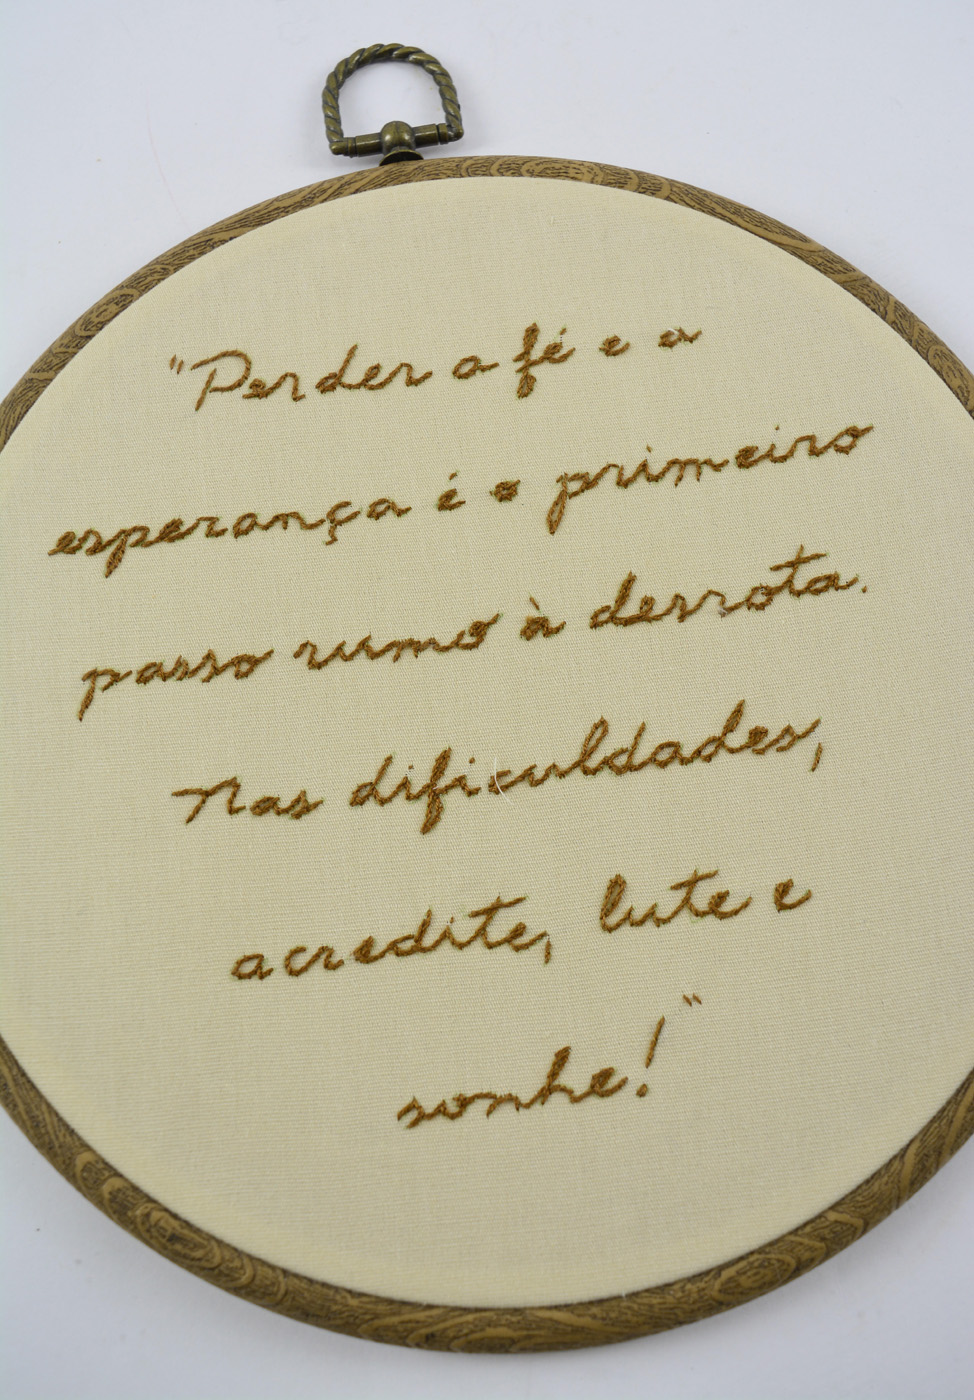 "Perder a fé e a
esperança é o primeiro
passo rumo à derrota.
Nas dificuldades,
acredite, lute e
sonhe!"